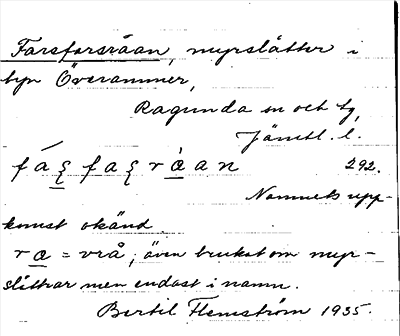 Farsforsråan, myrslåtter i
byn Överammer,
Ragunda sn och tg,
Jämtl. l.
292.
Namnets upp-
komst okänd.
ra = vrå, även brukat om myr-
slåttrar men endast i namn.
Bertil Flemström 1935.